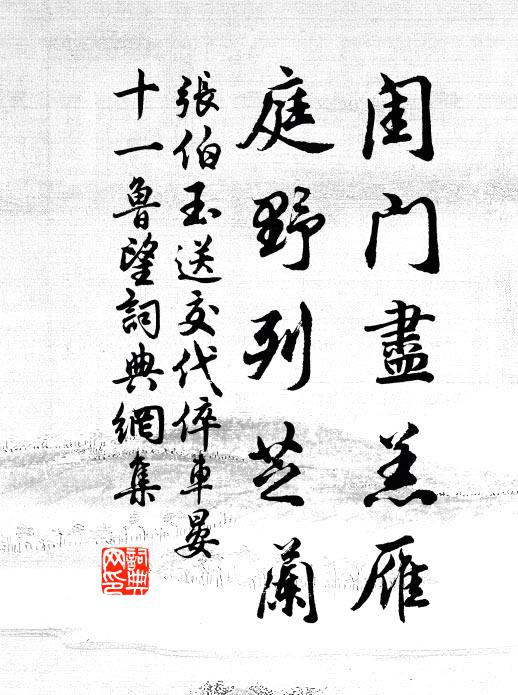 閨門盡羔雁
庭野列芝蘭
張伯玉送交代倅車晏
十一魯望詞典網集
詞典網印